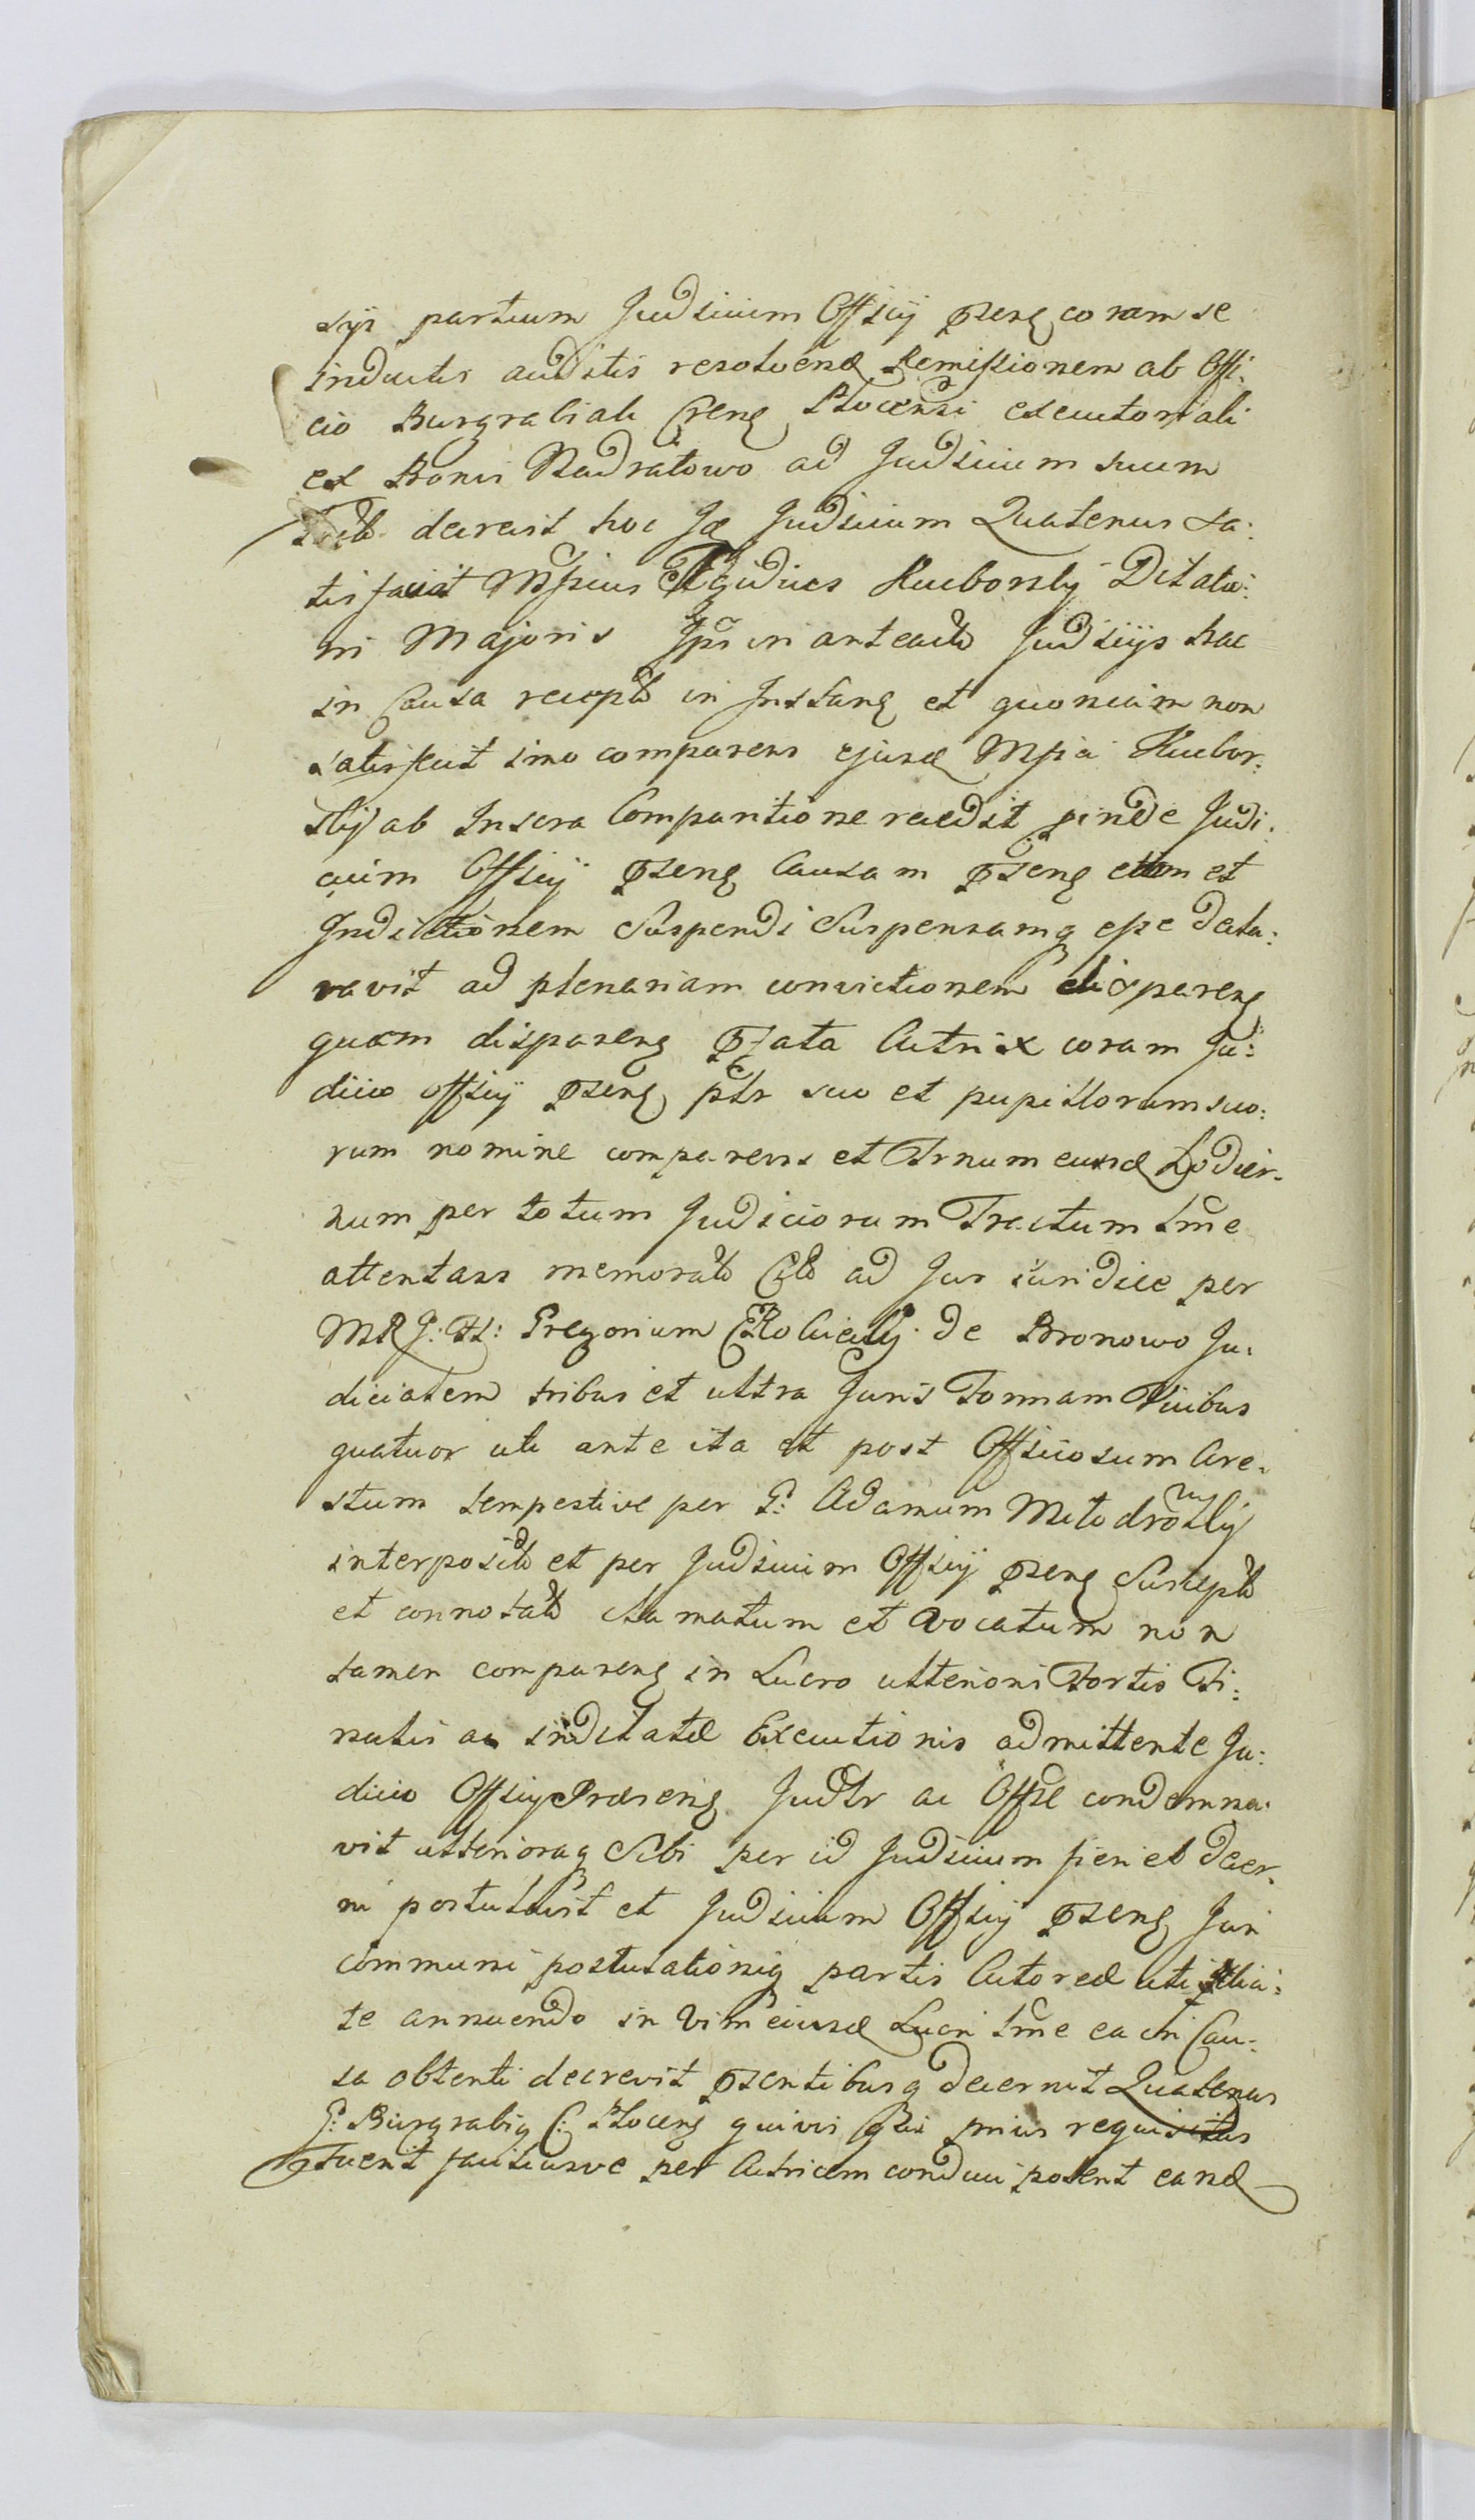 syi partium Judicium Officij pseng coram se
inductis auditis resolvend Remissionem ab Offi:
cio Burgrabiali Creng Plocensi executoriali
ex Bonis Nadratowo ad Judicium suum
decrevit hoc Jd Judicium Quatenus Sa:
tisfaciat Mgficus Ægidius Rucborsky Dilatio:
ni Majoris in anteacto Judicijs hac
in Causa recepto in Instang et quoniam non
satisfecit imo comparens ejusd Mfici Rucbor:
skij ab Insera Comparitione recedit pinde Judi:
cium Officij pseng Causam pseng et
Indictionem Suspendi Suspensamq esse decla:
ravit ad plenariam convictionem compareng
quam dispareng Actrix coram Ju:
dicio officij pseng pltr suo et pupillorum suo:
rum nomine comparens et Trnum eund hodier:
num per totum Judiciorum Tractum tme
attentans memorato Cto ad Jus juridice per
MRJ: H: Gregorium de Bronowo Ju:
dicialem tribus et ultra Juris Formam Vicibus
quatuor uti ante ita et post Officiosum Are:
stum tempestive per G: Adamum
interposito et per Judicium Officij pseng Suscepto
et connotato clamatum et vocatum non
tamen compareng in Lucro ulteriori Sortis Fi:
nalis ac indilatæ Executionis admittente Ju:
dicio Officij Præseng Judltr ac Offse condemna:
vit ulterioraq Sibi per id Judicium fieri et decer:
ni postulavit et Judicium Officij pseng Juri
communi postulationiq partis Actoreæ uti lici:
te annuendo in Vim eiusd Lucri tme ea in Cau:
sa obtenti decrevit psentibusq decernit Quatenus
G: Burgrabig C: Ploceng quivis prius requisitus
Fuerit faciliusve per Actricem conduci poterit eand